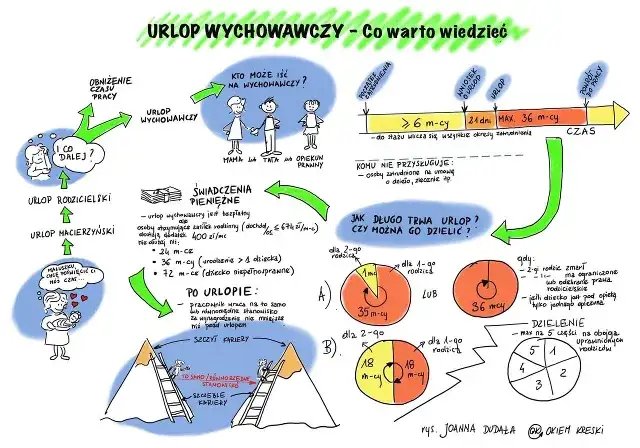 URLOP WYCHOWAWCZY - Co warto wiedzieć
OBNIŻENIE
CZASU
PRACY
URLOP
WYCHOWAWCZY
I CO
DALEJ?
URLOP RODZICIELSKI
URLOP MACIERZYŃSKI
MALUSZKU,
CHCĘ POŚWIĘCIĆ CI
MÓJ CZAS...
KTO MOŻE IŚĆ
NA WYCHOWAWCZY?
MAMA lub TATA lub OPIEKUN
PRAWNY
POCZĄTEK
ZATRUDNIENIA
WNIOSEK
O URLOP
URLOP
POWRÓT
DO PRACY
≥ 6 m-cy
21 dni
MAX. 36 m-cy
CZAS
- do stażu wlicza się wszystkie okresy zatrudnienia
KOMU NIE PRZYSŁUGUJE:
- osoby zatrudnione na umowę
o dzieło, zlecenie itp.
ŚWIADCZENIA
PIENIĘŻNE
- urlop wychowawczy jest bezpłatny
osoby otrzymujące zasiłek rodzinny (dochód/os ≤ 674 zł/m-c)
dostają dodatek 400 zł/mc
nie dłużej niż:
• 24 m-ce
• 36 m-cy (urodzenie > 1 dziecka)
• 72 m-ce (dziecko niepełnosprawne)
JAK DŁUGO TRWA URLOP?
CZY MOŻNA GO DZIELIĆ?
PO URLOPIE:
- pracownik wraca na to samo
lub równorzędne stanowisko
za wynagrodzenie nie mniejsze
niż przed urlopem
SZCZYT KARIERY
TO SAMO/RÓWNORZĘDNE
STANOWISKO
SZCZEBLE
KARIERY
A)
dla 2-go
rodzica
dla 1-go
rodzica
1 mc
35 m-cy
LUB
36
m-cy
gdy:
- 2-gi rodzic zmarł
ma ograniczone
lub odebrane prawa
rodzicielskie
- jeśli dziecko jest pod opieką
tylko jednego opiekuna
B)
dla 2-go
rodzica
dla 1-go
rodzica
18
m-cy
18
m-cy
DZIELENIE
- max na 5 części na obojga
uprawnionych
rodziców
5 1
4 2
3
rys. JOANNA DUDAŁA OK. OKIEM KRESKI